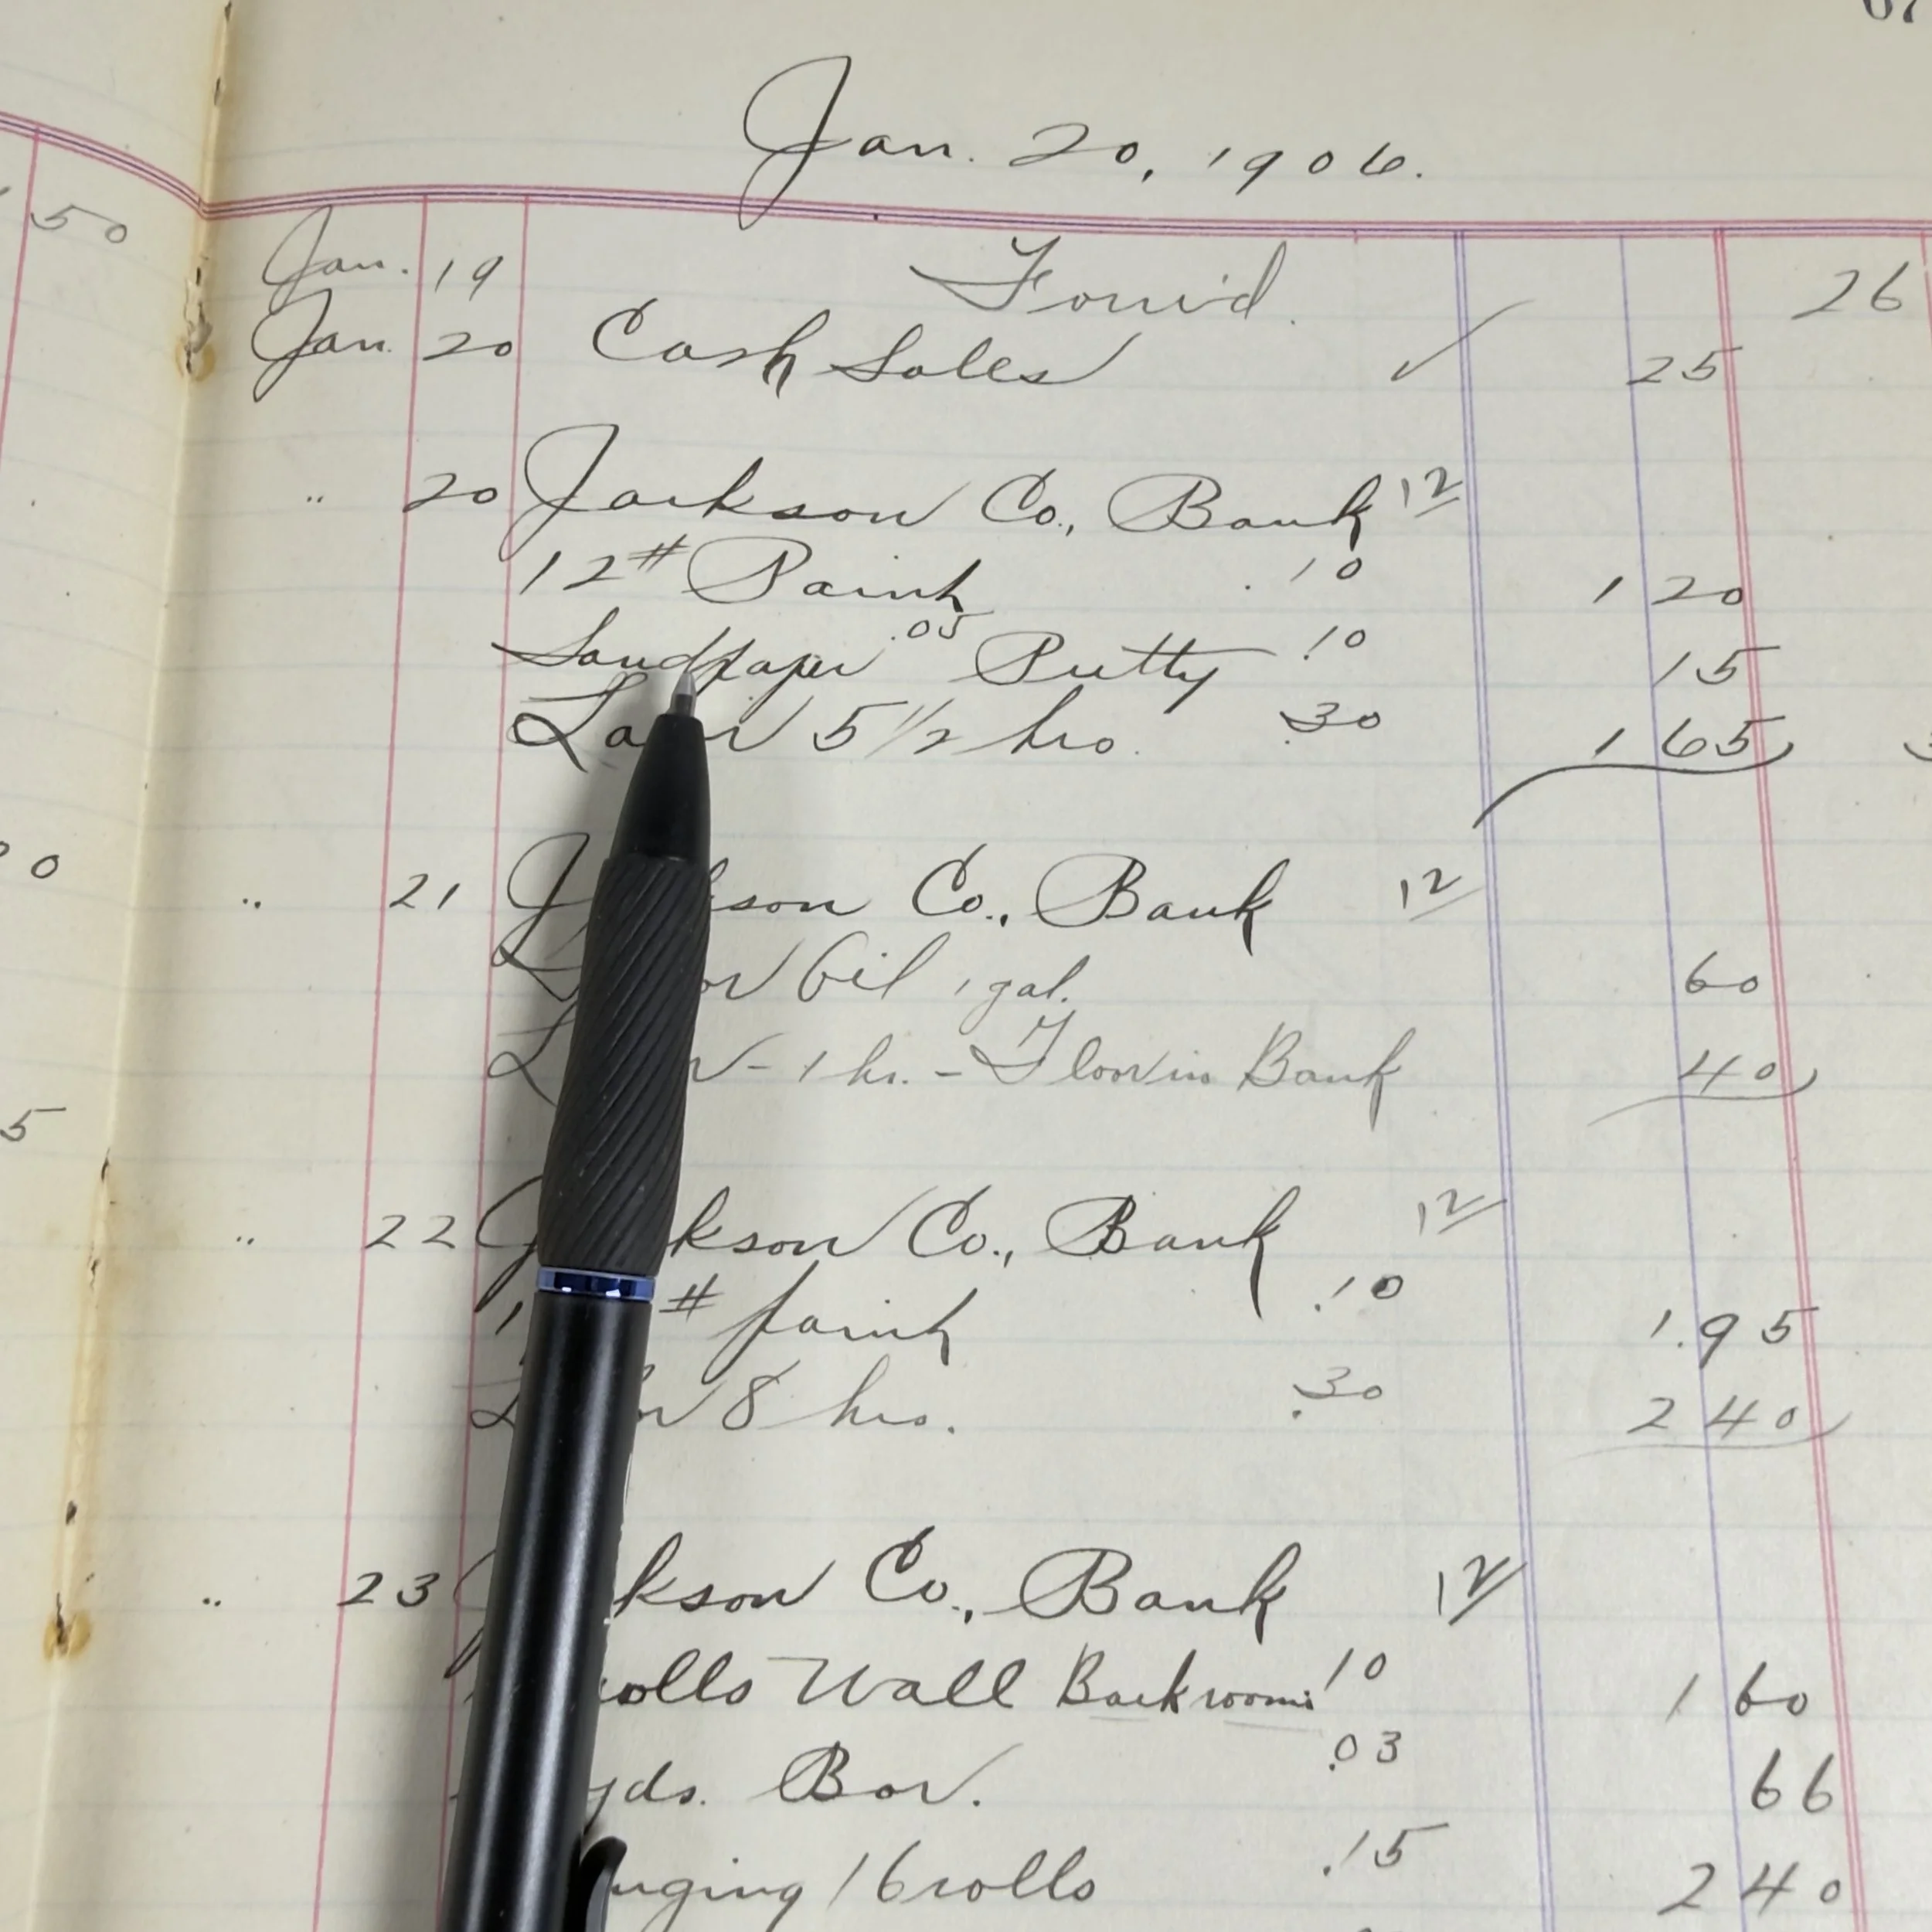 Jan. 20, 1906.
50
Jan. 19 For'd. 26
Jan. 20 Cash Sales ✓ 25
" 20 Jackson Co., Bank 12
12# Paint .10 1 20
Sandpaper .05 Putty .10 15
5 1/2 hrs. .30 1 65
0
" 21 son Co., Bank 12
or Oil 1 gal. 60
r - 1 hr. - Floor in Bank 40
5
" 22 kson Co., Bank 12
# paint .10 1.95
8 hrs. .30 2 40
" 23 kson Co., Bank 12
rolls Wall Back room .10 1 60
yds. Bor. .03 66
nging 16 rolls .15 2 40